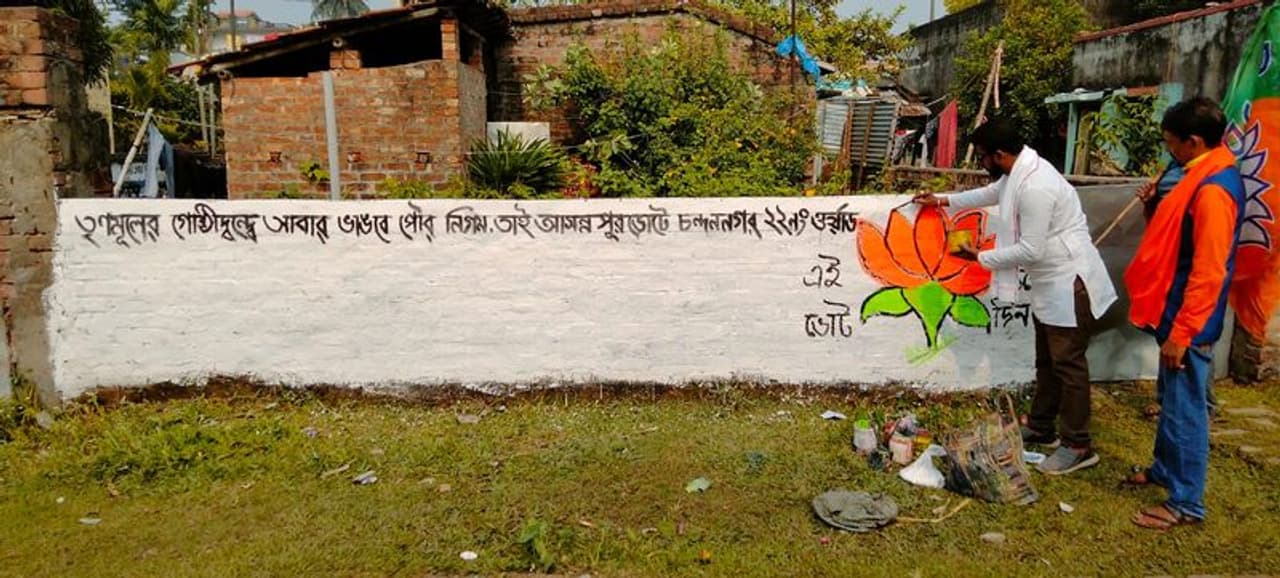 তৃণমূলের গোষ্ঠীদ্বন্দ্বে আবার ভাঙবে পৌর নিগম.তাই আসন্ন পুরভোটে চন্দননগর ২২নং ওর্য়াড
এই
ভোট দিন